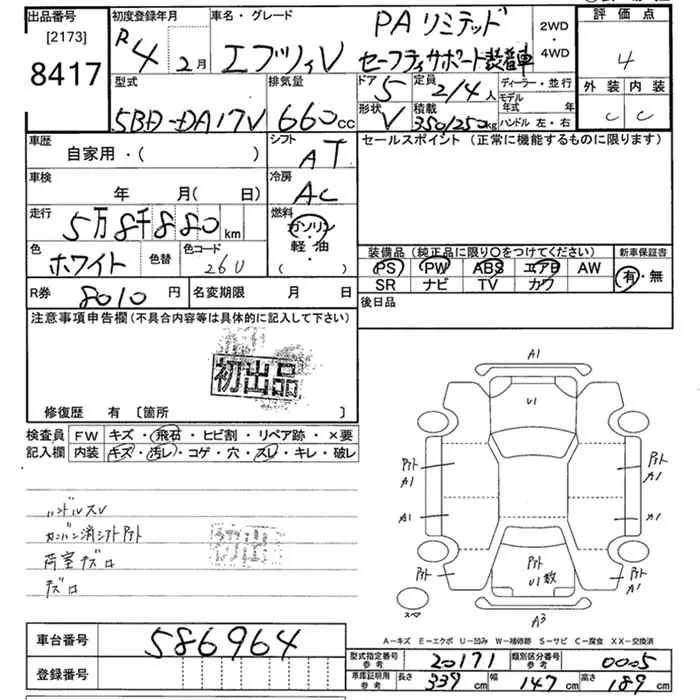 出品番号
[2173]
8417
初度登録年月
R4 2月
車名・グレード
エブリィV
PA リミテッド
セーフティサポート装着車
2WD
・
4WD
評価点
4
外装 内装
C C
型式
5BD-DA17V
排気量
660cc
ドア
5
定員
2/4人
形状
V
積載
350/250kg
ディーラー・並行
モデル年式 年
ハンドル 左・右
車歴
自家用・( )
シフト
AT
セールスポイント (正常に機能するものに限ります)
車検
年 月( 日)
冷房
AC
走行
5万8千880km
燃料
ガソリン
・
軽油
・
( )
色
ホワイト
色替
色コード
26U
装備品 (純正品に限り○をつけてください)
PS PW ABS エアB AW
SR ナビ TV カワ
新車保証書
有・無
R券
8010円
名変期限 月 日
後日品
注意事項申告欄(不具合内容等は具体的に記入して下さい)
初出品
修復歴 有 [箇所 ]
検査員記入欄
FW キズ・飛石・ヒビ割・リペア跡・×要
内装 キズ・汚レ・コゲ・穴・スレ・キレ・破レ
ハンドルスレ
カンバン消シアトアト
荷室キズロ
キズロ
A1
U1
アト
A1
アト
A1
A1
A1
アト
アト
U1数
アト
A3
スペア
A-キズ E-エクボ U-凹み W-補修跡 S-サビ C-腐食 XX-交換済
車台番号
586964
登録番号
型式指定番号
参考
20171
類別区分番号
参考
0005
車庫証明用
参考
長さ
339
幅
147
高さ
189
cm